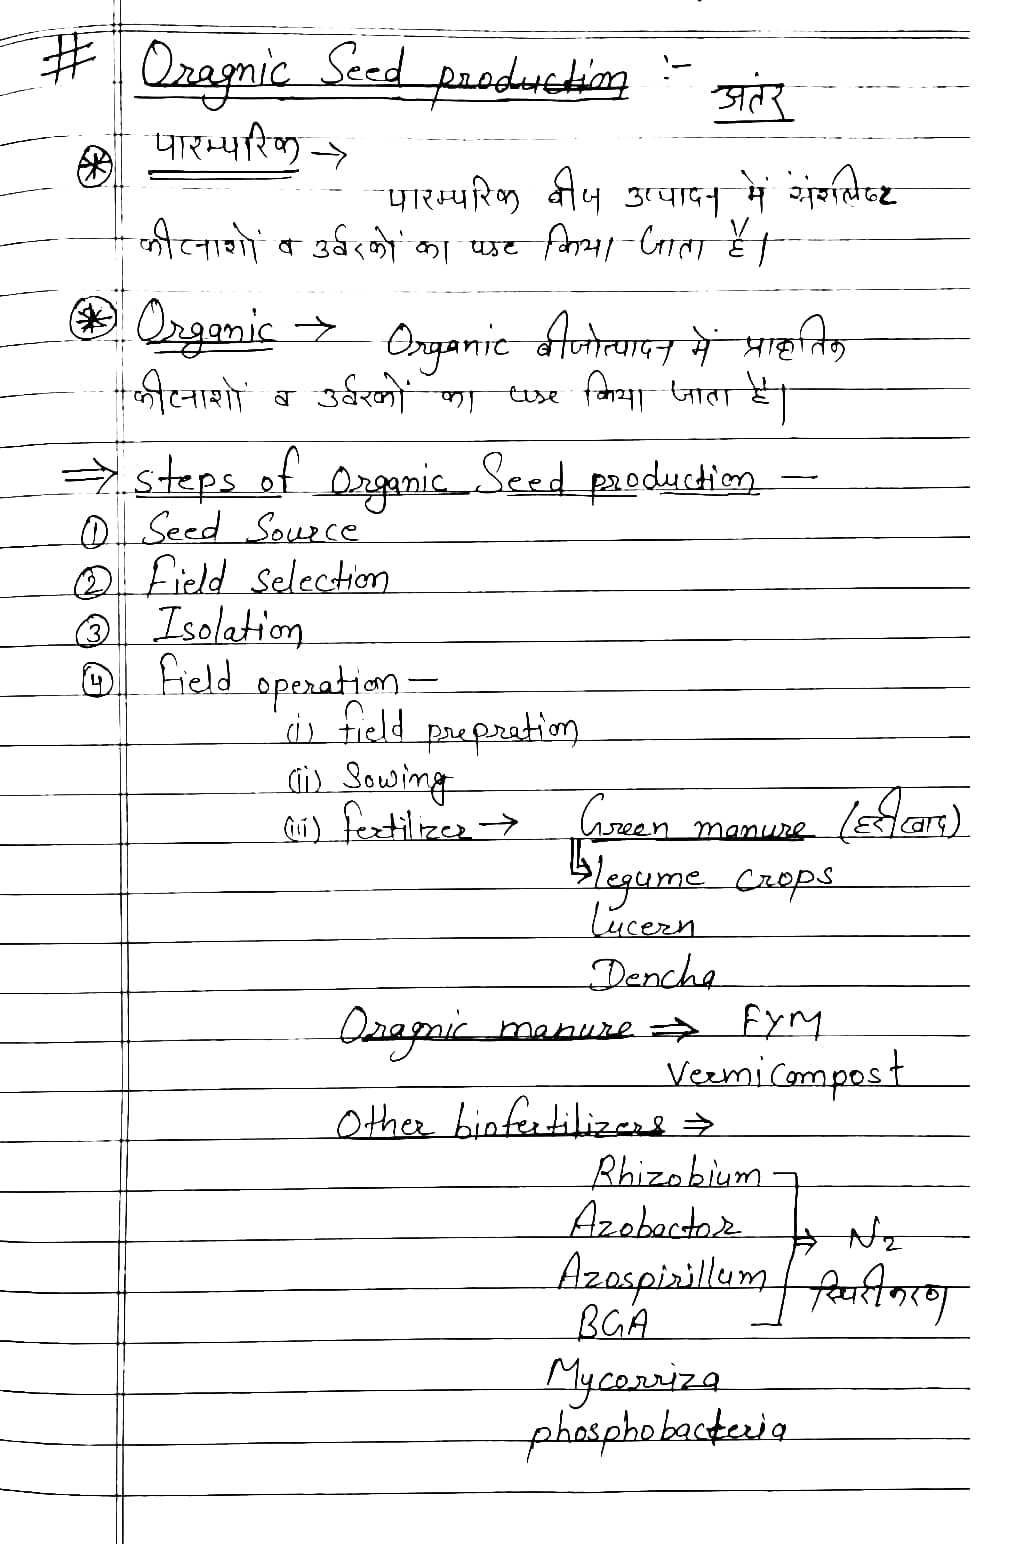 # Oragnic Seed production :- अंतर
⊛ पारम्परिक →
पारम्परिक बीज उत्पादन में संशलिष्ट
कीटनाशों व उर्वरकों का use किया जाता है।
⊛ Organic → Organic बीजोत्पादन में प्राकृतिक
कीटनाशों व उर्वरकों का use किया जाता है।
⇒ steps of Organic Seed production —
① Seed Source
② Field selection
③ Isolation
④ field operation —
(i) field prepration
(ii) Sowing
(iii) fertilizer → Green manure (हरी खाद)
↳ legume crops
Lucern
Dencha
Oragnic manure ⇒ FYM
Vermicompost
Other biofertilizers ⇒
Rhizobium
Azobactor → N2
Azospirillum स्थिरीकरण
BGA
Mycorriza
phosphobacteria